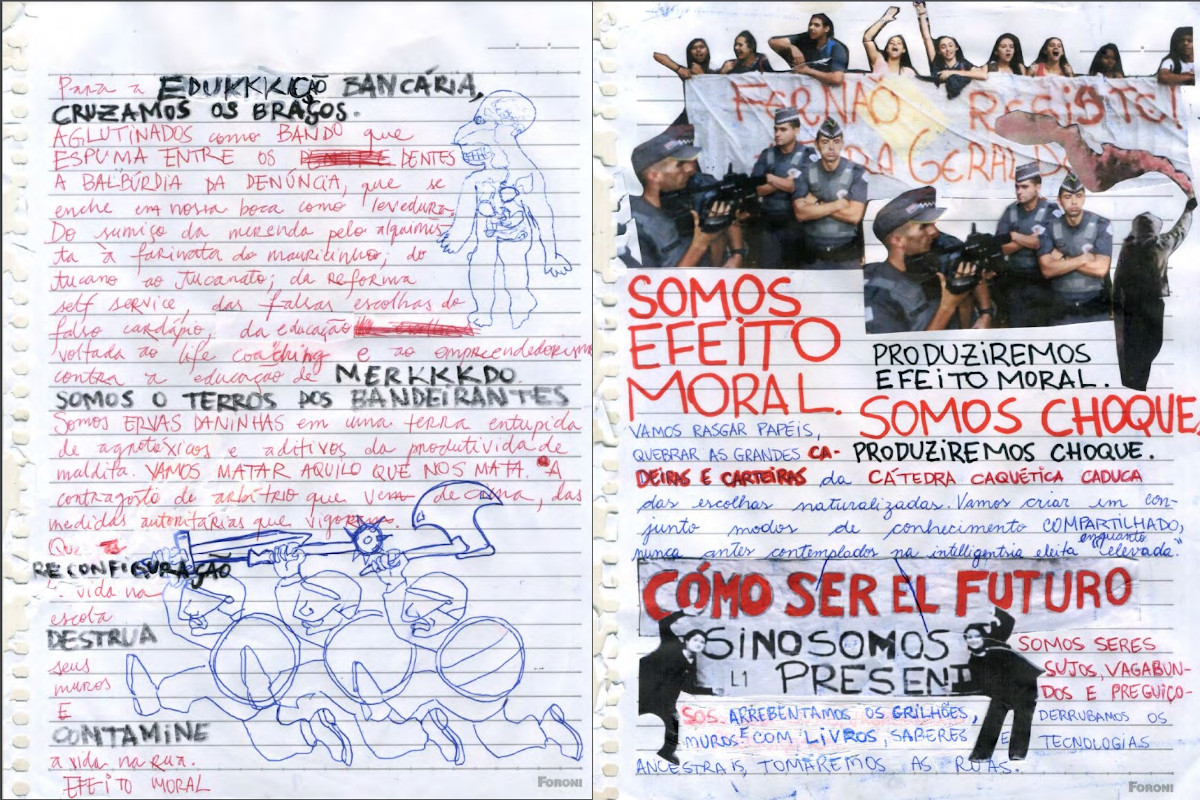 Para a EDUKKKAÇÃO BANCÁRIA,
CRUZAMOS OS BRAÇOS.
AGLUTINADOS como BANDO que
ESPUMA ENTRE OS DENTES
A BALBÚRDIA DA DENÚNCIA, que se
enche em nossa boca como levedura.
Do sumiço da merenda pelo alquimis-
ta à farinata do mauricinho; do
tucano ao tucanato; da reforma
self service, das falsas escolhas do
falso cardápio, da educação
voltada ao life coaching e ao empreendedorismo
contra a educação de MERKKKDO.
SOMOS O TERROS DOS BANDEIRANTES
Somos ERVAS DANINHAS em uma terra entupida
de agrotóxicos e aditivos da produtividade
maldita. VAMOS MATAR AQUILO QUE NOS MATA. A
contragosto do arbítrio que vem de cima, das
medidas autoritárias que vigoram.
Que a
RECONFIGURAÇÃO
vida na
escola
DESTRUA
seus
muros
E
CONTAMINE
a vida na rua.
EFEITO MORAL
FORONI
FERNÃO RESISTE!
GERAL
SOMOS
EFEITO
MORAL.
PRODUZIREMOS
EFEITO MORAL.
SOMOS CHOQUE,
PRODUZIREMOS CHOQUE.
VAMOS RASGAR PAPÉIS,
QUEBRAR AS GRANDES CA-
DEIRAS E CARTEIRAS da CÁTEDRA CAQUÉTICA CADUCA
das escolhas naturalizadas. Vamos criar em con-
junto modos de conhecimento COMPARTILHADO,
enquanto
nunca antes contemplados na intelligentsia eleita "elevada".
CÓMO SER EL FUTURO
SI NO SOMOS
L1 PRESENT
SOMOS SERES
SUJOS, VAGABUN-
DOS E PREGUIÇO-
SOS. ARREBENTAMOS OS GRILHÕES, DERRUBAMOS OS
MUROS E COM LIVROS, SABERES E TECNOLOGIAS
ANCESTRAIS, TOMAREMOS AS RUAS.
FORONI